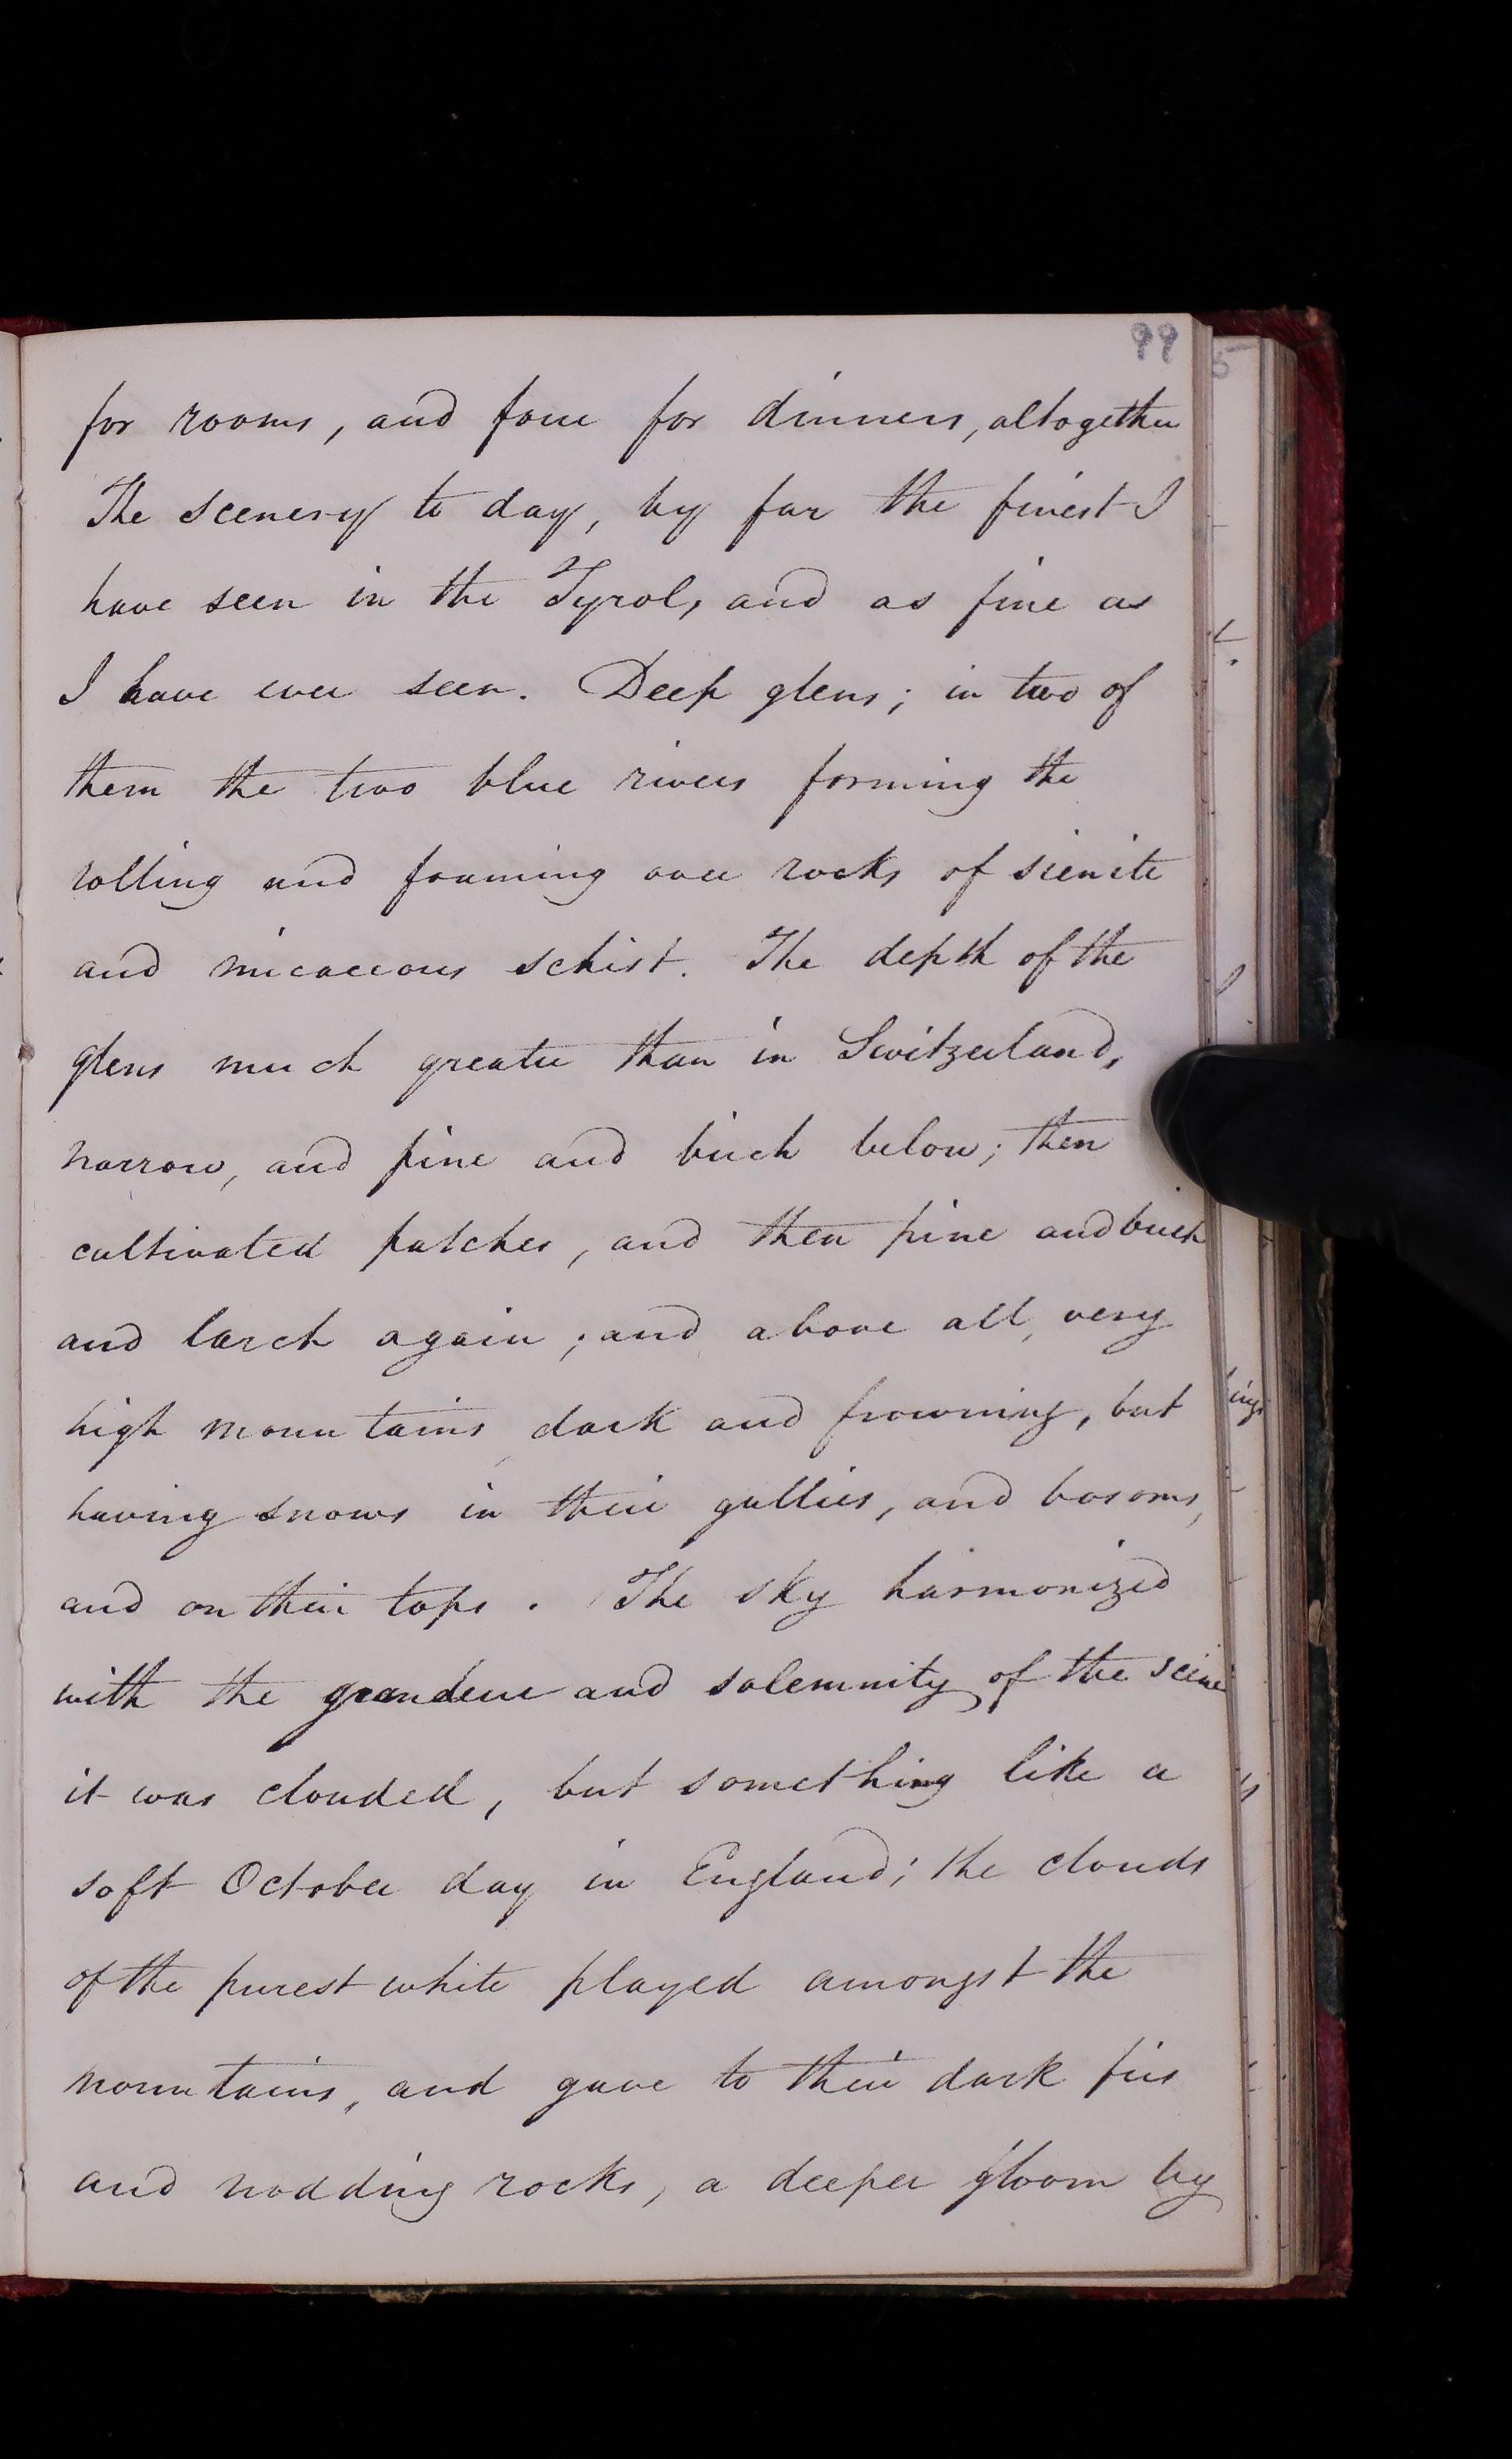 99
for rooms, and four for dinners, altogether
The scenery to day, by far the finest I
have seen in the Tyrol, and as fine as
I have ever seen. Deep glens; in two of
them the two blue rivers forming the
rolling and foaming over rocks of sienite
and micaceous schist. The depth of the
glens much greater than in Switzerland,
narrow, and pine and birch below; then
cultivated patches, and then pine and birch
and larch again; and above all, very
high mountains, dark and frowning, but
having snows in their gullies, and bosoms,
and on their tops. The sky harmonized
with the grandeur and solemnity of the scene
it was clouded, but something like a
soft October day in England; the clouds
of the purest white played amongst the
mountains, and gave to their dark firs
and nodding rocks, a deeper gloom by